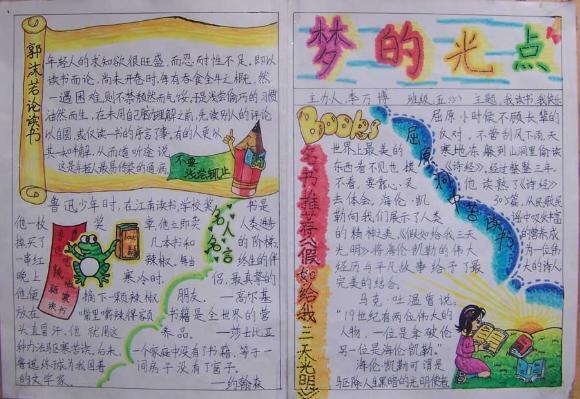 郭沫若论读书
年轻人的求知欲很旺盛,而忍耐性不足,即以
读书而论,尚未开卷时,每有吞食全牛之概,然
一遇困难,则不禁颓然而气馁,于是浅尝偷巧的习惯
油然而生,在未用自己的理解之前,先读别人的评论
以自固,或仅读一书的序言了事,有的人更从
其一知半解,从而道听途说
这是年轻人最易传染的通病
不要
浅尝辄止
鲁迅少年时,在江南读书,学校
奖
他一枚
奖章,他立即卖
掉买了
几本书和
一串红
辣椒。每当
晚上
寒冷时,
他便
摘下一颗辣椒
放在
嘴里嚼辣得额
头直冒汗。他就用这
种办法驱寒苦读。后来
鲁迅终于成为我国著
的文学家。
鲁迅嚼辣椒驱寒读书
名人名言
书是
人类进步
的阶梯,
终生的伴
侣,最真挚的
朋友。
——高尔基
书籍是全世界的营
养品。
——莎士比亚
一个家庭中没有了书籍,等于一
间房子没有了窗子。
——约翰森
梦的光点
主办人:李万博 班级:五(5) 主题:我读书,我快乐
Books
名书推荐《假如给我三天光明》
世界上最美的
东西看不见也摸
不着,要靠心灵
去体会。海伦·凯
勒向我们展示了人类
的精神之美《假如给我三天
光明》将海伦·凯勒的伟大
经历与平凡故事给予了最
完美的结合。
马克·吐温曾说:
“19世纪有两位伟大的
人物,一位是拿破伦
另一位是海伦·凯勒。”
海伦·凯勒可谓是
驱除人生黑暗的光明使者
屈原洞中苦读书
屈原小时候不顾长辈的
反对,不管刮风下雨天
寒地冻躲到山洞里偷读
《诗经》,经过整整三年,
他读熟了《诗经》
305篇,从民歌民
谣中吸收丰富
的营养,成
为一位伟
大的诗人